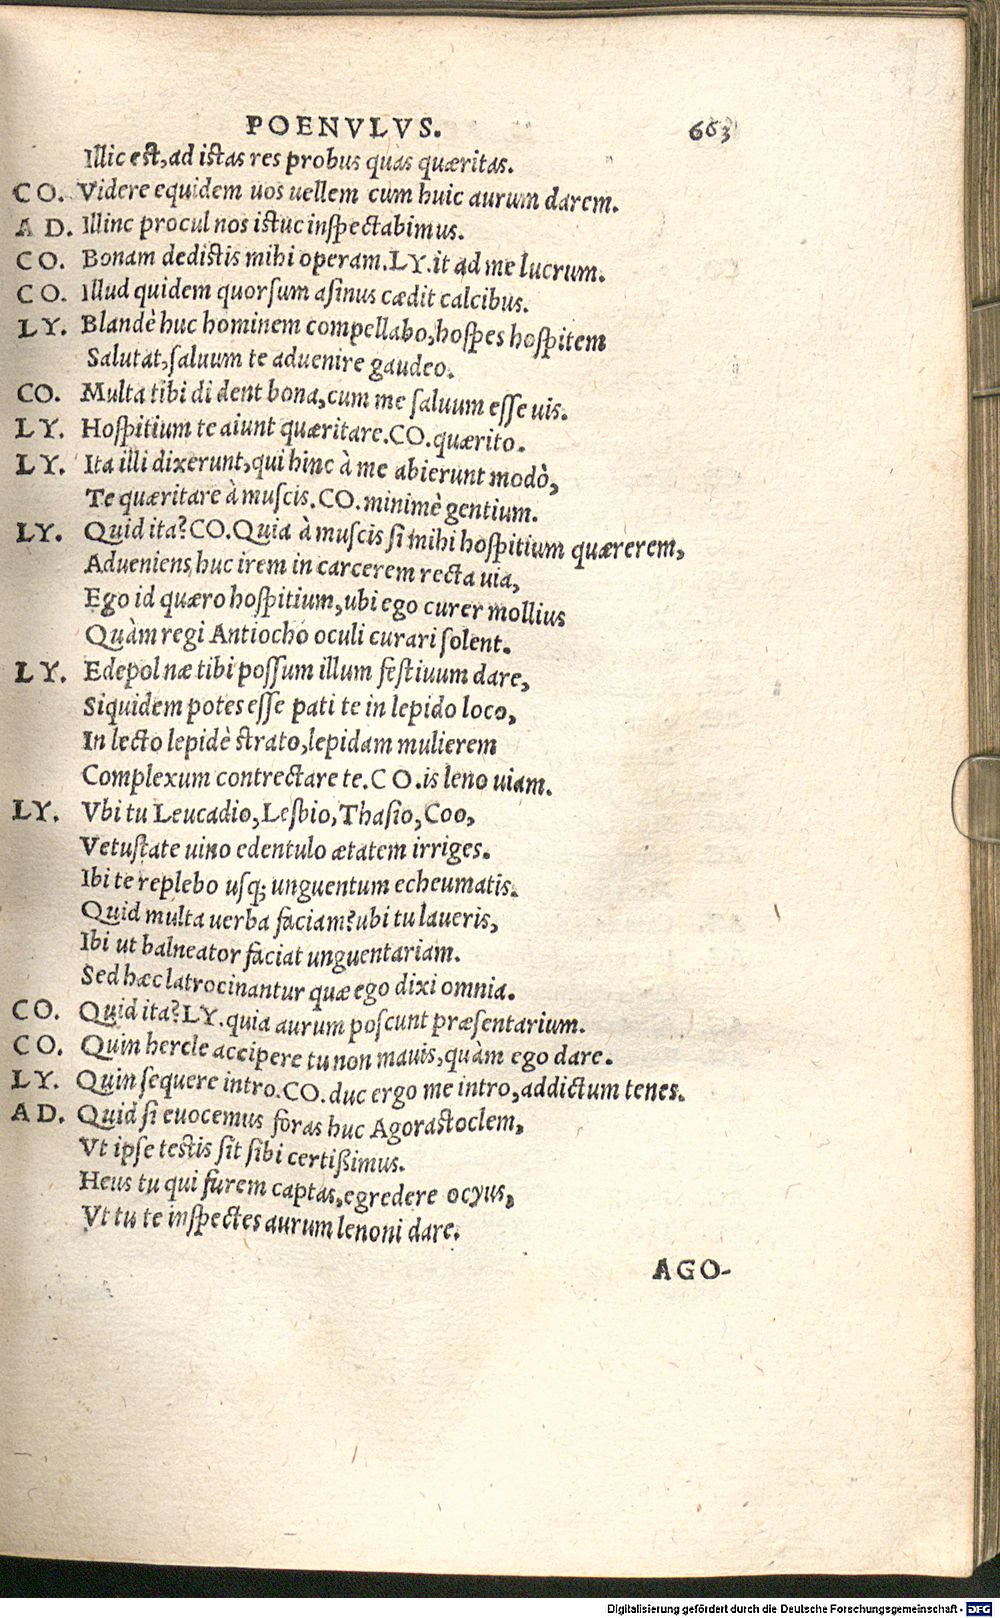 POENVLVS. 663
Illic est, ad istas res probus quas quæritas.
CO. Videre equidem uos uellem cum huic aurum darem.
AD. Illinc procul nos istuc inspectabimus.
CO. Bonam dedistis mihi operam. LY. it ad me lucrum.
CO. Illud quidem quorsum asinus cædit calcibus.
LY. Blandè huc hominem compellabo, hospes hospitem
Salutat, saluum te aduenire gaudeo.
CO. Multa tibi di dent bona, cum me saluum esse uis.
LY. Hospitium te aiunt quæritare. CO. quærito.
LY. Ita illi dixerunt, qui hinc à me abierunt modò,
Te quæritare à muscis. CO. minimè gentium.
LY. Quid ita? CO. Quia à muscis si mihi hospitium quærerem,
Adueniens huc irem in carcerem recta uia,
Ego id quæro hospitium, ubi ego curer mollius
Quàm regi Antiocho oculi curari solent.
LY. Edepol næ tibi possum illum festiuum dare,
Siquidem potes esse pati te in lepido loco,
In lecto lepidè strato, lepidam mulierem
Complexum contrectare te. CO. is leno uiam.
LY. Vbi tu Leucadio, Lesbio, Thasio, Coo,
Vetustate uino edentulo ætatem irriges.
Ibi te replebo usq; unguentum echeumatis.
Quid multa uerba faciam? ubi tu laueris,
Ibi ut balneator faciat unguentariam.
Sed hæc latrocinantur quæ ego dixi omnia.
CO. Quid ita? LY. quia aurum poscunt præsentarium.
CO. Quin hercle accipere tu non mauis, quàm ego dare.
LY. Quin sequere intro. CO. duc ergo me intro, addictum tenes.
AD. Quid si euocemus foras huc Agorastoclem,
Vt ipse testis sit sibi certißimus.
Heus tu qui furem captas, egredere ocyus,
Vt tu te inspectes aurum lenoni dare.
AGO-
Digitalisierung gefördert durch die Deutsche Forschungsgemeinschaft - DFG